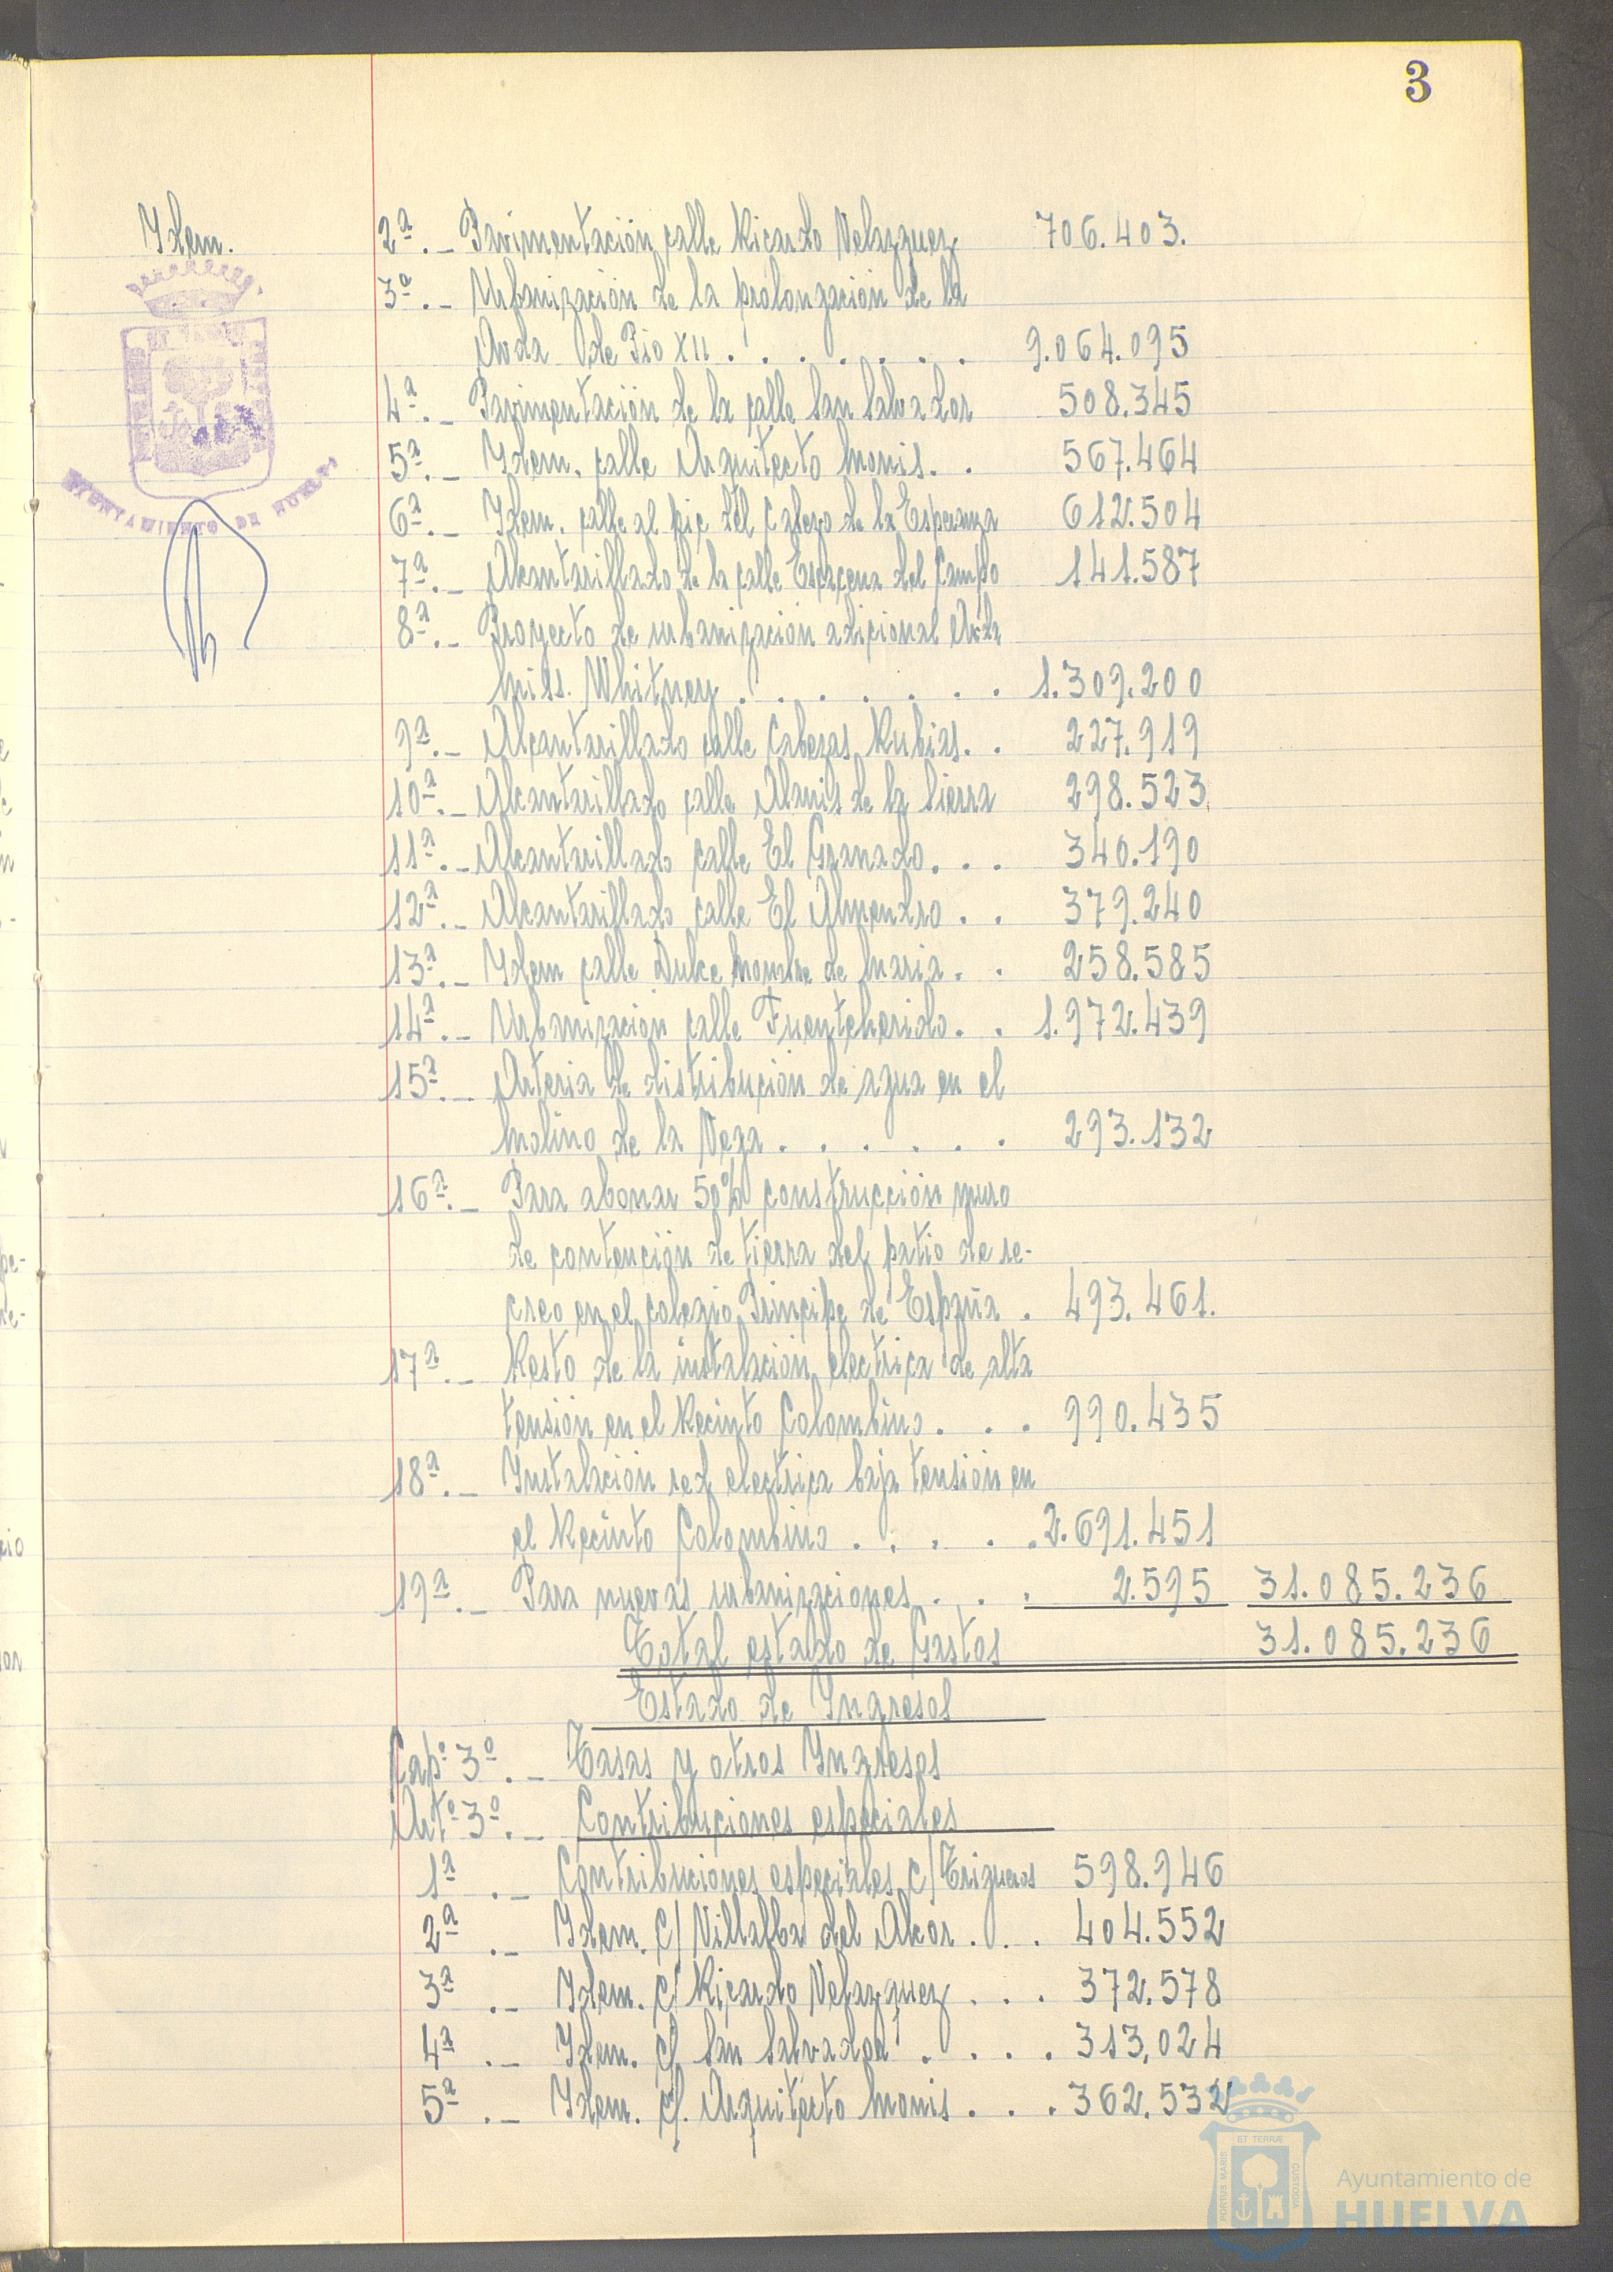 3
Idem.
2ª.- Pavimentación calle Ricardo Velazquez 706.403.
3ª.- Urbanización de la prolongación de la
Avda de Pio XII . . . . . . . 9.064.095
4ª.- Pavimentación de la calle San Salvador 508.345
5ª.- Idem. calle Arquitecto Monis. . 567.464
6ª.- Idem. calle al pie del Cabezo de la Esperanza 612.504
7ª.- Alcantarillado de la calle Escacena del Campo 141.587
8ª.- Proyecto de urbanización adicional Avda
Miss. Whitney . . . . . . . 1.309.200
9ª.- Alcantarillado calle Cabezas Rubias. . 227.919
10ª.- Alcantarillado calle Alanis de la Sierra 298.523
11ª.- Alcantarillado calle El Granado. . . 340.190
12ª.- Alcantarillado calle El Almendro . . 379.240
13ª.- Idem calle Dulce Nombre de Maria. . 258.585
14ª.- Urbanización calle Fuenteherido. . 1.972.439
15ª.- Arteria de distribución de agua en el
Molino de la Vega . . . . . . 293.132
16ª.- Para abonar 50% construcción muro
de contención de tierra del patio de re-
creo en el colegio Principe de España . 493.461.
17ª.- Resto de la instalación electrica de alta
tensión en el Recinto Colombino . . . 990.435
18ª.- Instalación red electrica baja tensión en
el Recinto Colombino . . . . . 2.691.451
19ª.- Para nuevas urbanizaciones . . . 2.595 31.085.236
Total estado de Gastos 31.085.236
Estado de Ingresos
Capº 3º.- Tasas y otros Ingresos
Artº 3º.- Contribuciones especiales
1ª .- Contribuciones especiales c/ Trigueros 598.946
2ª .- Idem. c/ Villalba del Alcor . . . 404.552
3ª .- Idem. c/ Ricardo Velazquez . . . 372.578
4ª .- Idem. c/ San Salvador . . . . 313.024
5ª .- Idem. c/. Arquitecto Monis . . . 362.532
AYUNTAMIENTO DE HUELVA
PORTUS MARIS ET TERRÆ CUSTODIA
Ayuntamiento de
HUELVA